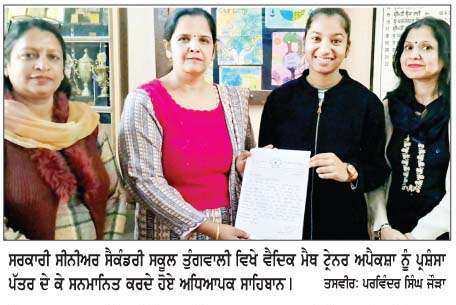 ਸਰਕਾਰੀ ਸੀਨੀਅਰ ਸੈਕੰਡਰੀ ਸਕੂਲ ਤੁੰਗਵਾਲੀ ਵਿਖੇ ਵੈਦਿਕ ਮੈਥ ਟ੍ਰੇਨਰ ਅਪੈਕਸ਼ਾ ਨੂੰ ਪ੍ਰਸ਼ੰਸਾ
ਪੱਤਰ ਦੇ ਕੇ ਸਨਮਾਨਿਤ ਕਰਦੇ ਹੋਏ ਅਧਿਆਪਕ ਸਾਹਿਬਾਨ। ਤਸਵੀਰ: ਪਰਵਿੰਦਰ ਸਿੰਘ ਜੌੜਾ